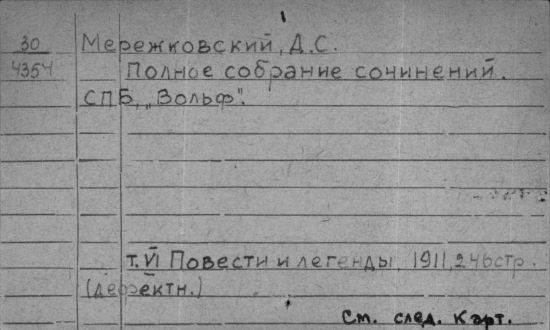 30 Мережковский, Д.С.
4354 Полное собрание сочинений.
СПБ, „Вольф".
т. VI Повести и легенды 1911, 246 стр.
(дефектн.)
См. след. карт.